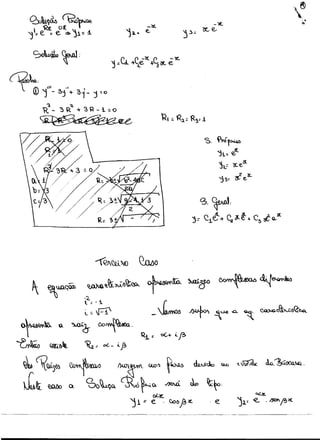 Soluções Próprias
y₁ = e^{0x} = 1 y₂ = e^{-x} y₃ = x e^{-x}
Solução Geral:
y = C₁ + C₂ e^{-x} + C₃ x e^{-x}
① y''' - 3y'' + 3y' - y = 0
R³ - 3R² + 3R - 1 = 0
R₁ = R₂ = R₃ = 1
S. Próprias
y₁ = e^x
y₂ = x e^x
y₃ = x² e^x
R² 3R + 3 = 0
S. Geral
y = C₁ e^x + C₂ x e^x + C₃ x² e^x
Terceiro Caso
A equação característica apresenta raízes complexas diferentes
i² = -1
i = √-1
Vamos supor que a eq. característica
apresenta a raiz complexa.
R₁ = α + iβ
Então existe R₂ = α - iβ
As Raízes complexas surgem aos pares devido ao da Báscara.
Neste caso a Solução Própria será do tipo.
y₁ = e^{αx} . cos βx e y₂ = e^{αx} . sen βx